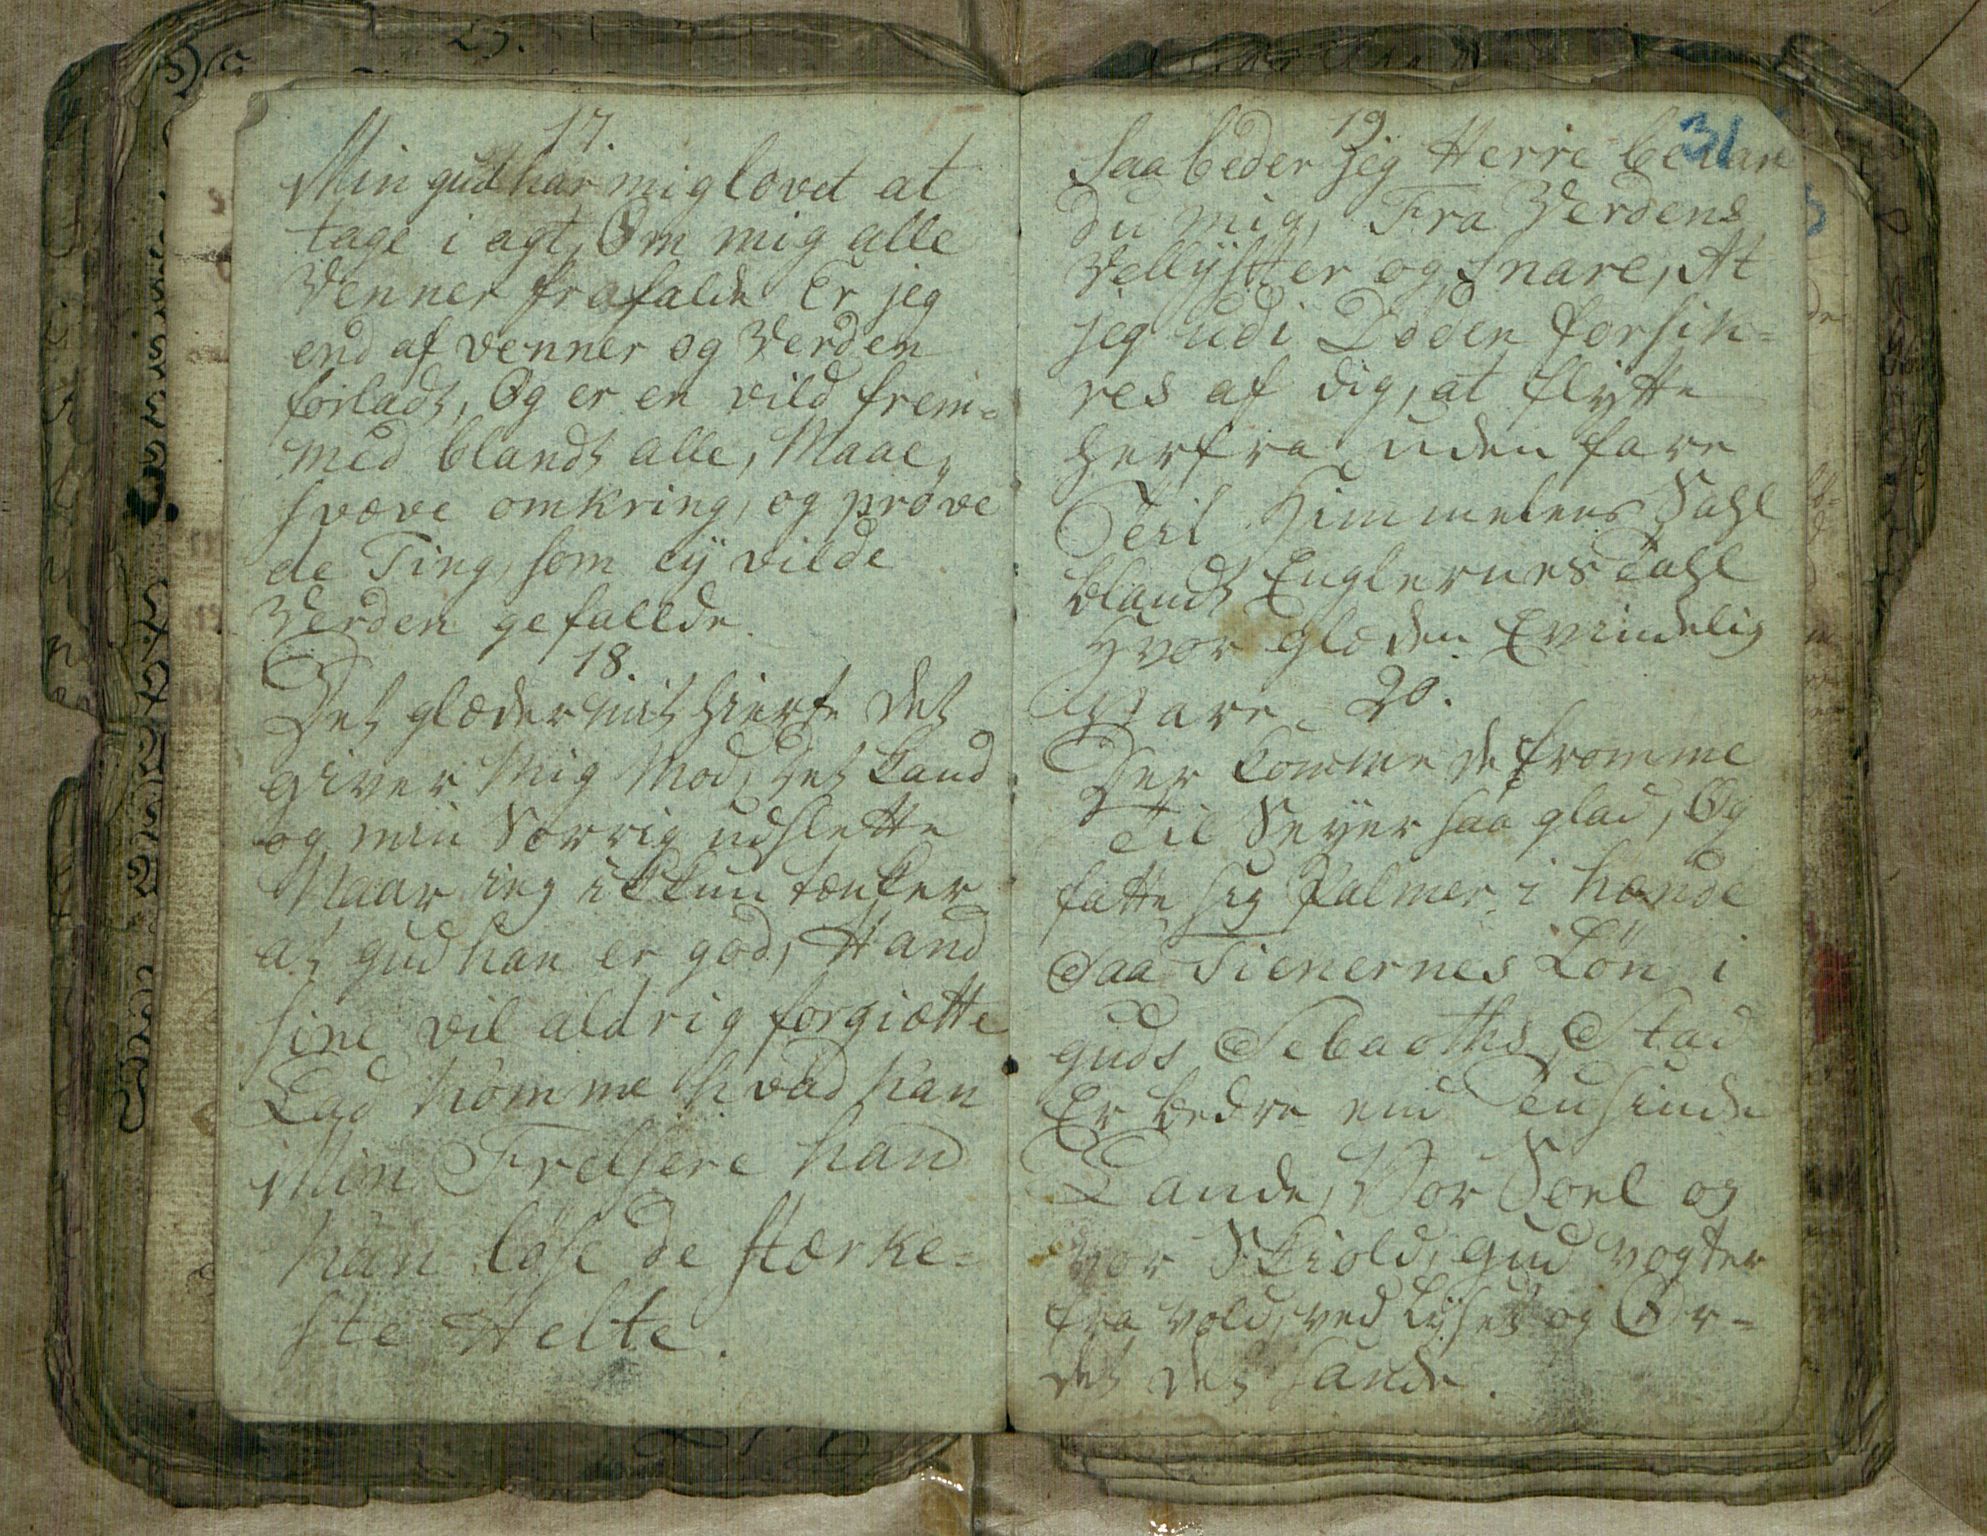 17.
Min gud har mig lovet at
tage i agt, Om mig alle
Venner frafalde Er jeg
end af venner og Verden
forladt, Og er en vild frem=
med blandt alle, Maae
svæve omkring, og prøve
de Ting, som eÿ vilde
Verden gefallde.
18.
Det glæder mit Hierte det
giver Mig Mod, det kand
og min Sorrig udslette
Naar ieg ikkun tænker
at gud han er god, Hand
sine vil aldrig forgiætte
Lad komme hvad kan
Min Frelsere hand
kan løse de stærke=
ste Helte.
19.
31
Saa beder jeg Herre bevare
du mig, Fra Verdens
Vellÿster og Snare, At
jeg udi Døden forsik=
res af dig, at flÿtte
herfra uden fare
Teil Himmelens Sahl
blandt Englernes Tahl
Hvor glæden Evindelig
Vare. 20.
Der komme de fromme
Til Seÿer saa glad, Og
fatte sig Palmer i hænde
Saa Tienernes Lön i
guds Sebaoths Stad
Er bedre end Tusinde
Lande, Vor Soel og
vor Skiold, gud vogter
fra vold, ved Lÿset og Or=
det det sande.